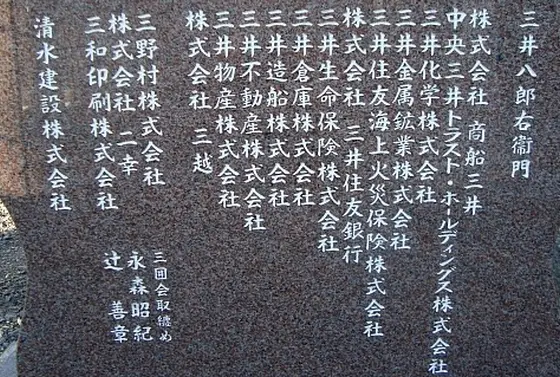 三井八郎右衞門
株式会社 商船三井
中央三井トラスト・ホールディングス株式会社
三井化学株式会社
三井金属鉱業株式会社
三井住友海上火災保険株式会社
株式会社 三井住友銀行
三井生命保険株式会社
三井倉庫株式会社
三井造船株式会社
三井不動産株式会社
三井物産株式会社
株式会社 三越
三野村株式会社
株式会社 二幸
三和印刷株式会社
清水建設株式会社
三囲会取纒め
永森昭紀
辻 善章